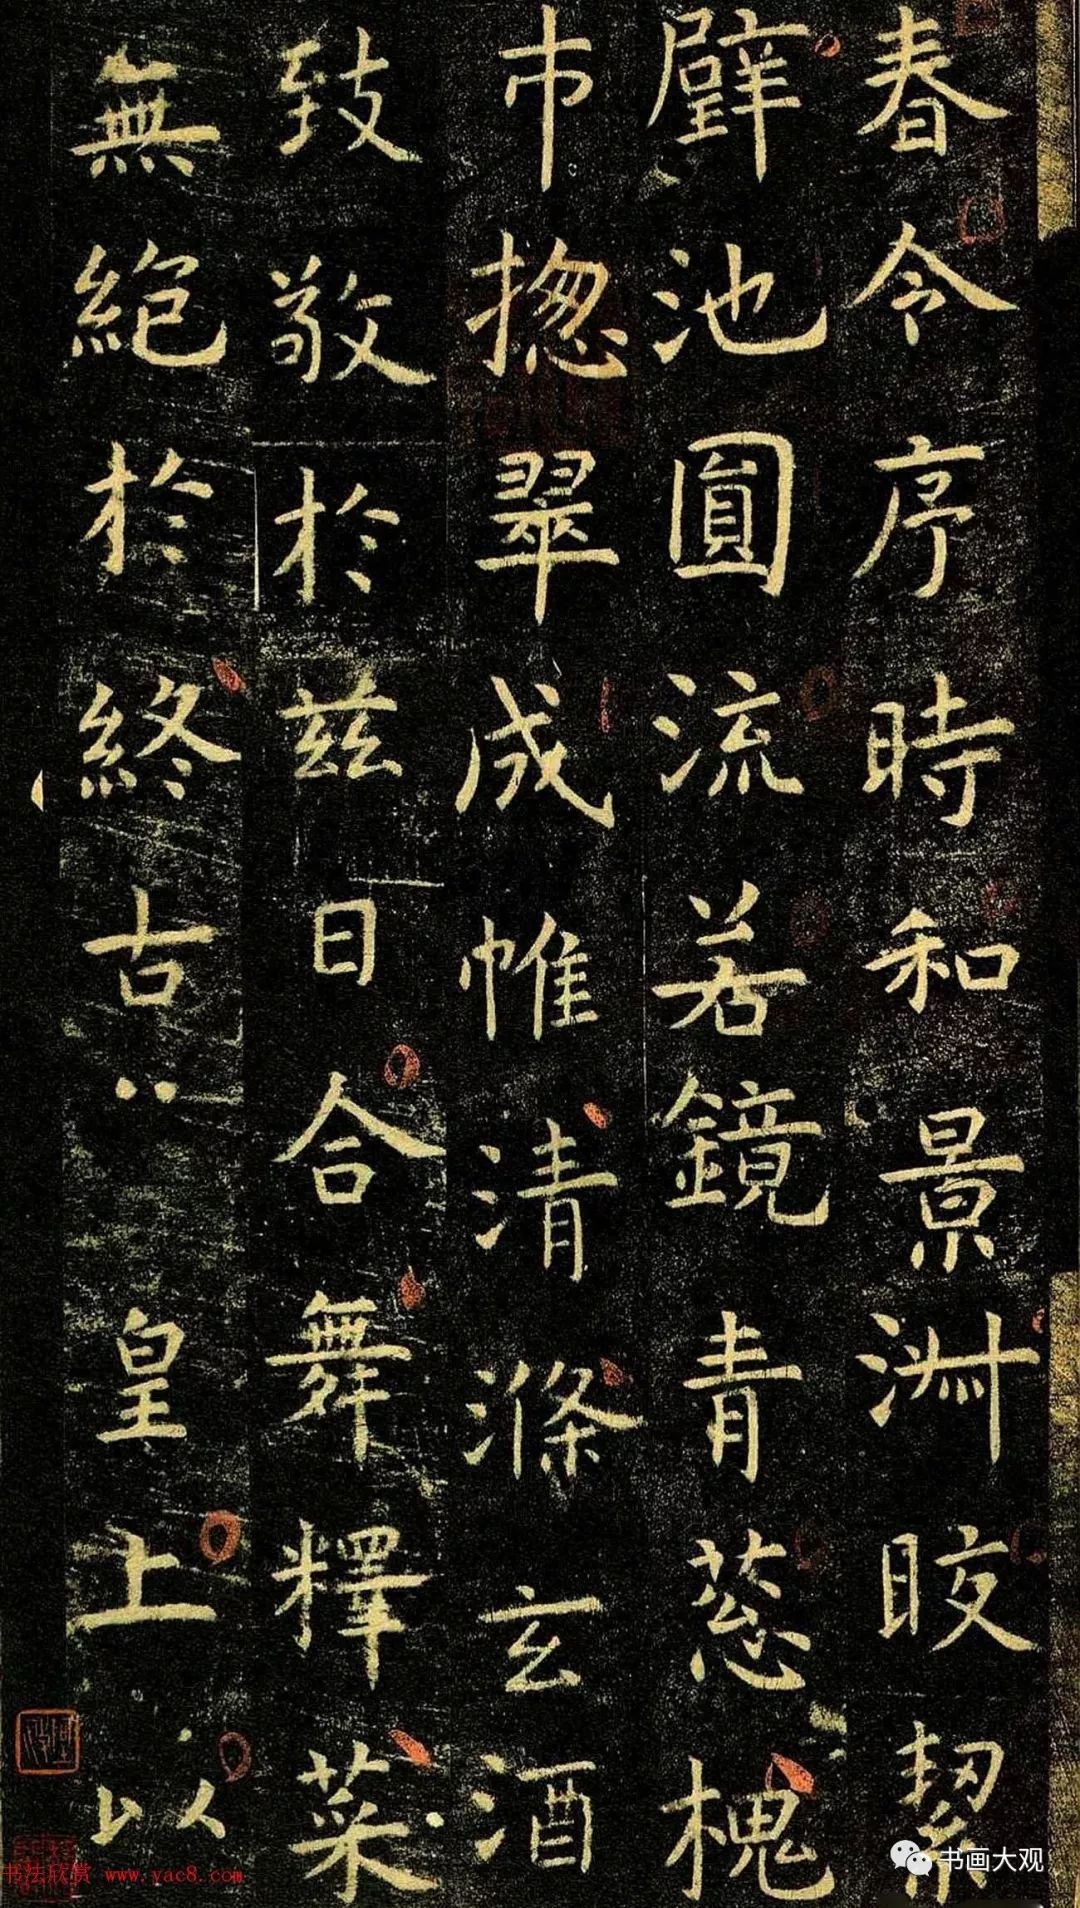 春令序時和景淋晈絜
辟池圓流若鏡青葱槐
市揔翠成帷清滌玄酒
致敬於兹日合舞釋菜
無絕於終古皇上以
书法欣赏 www.yac8.com
书画大观